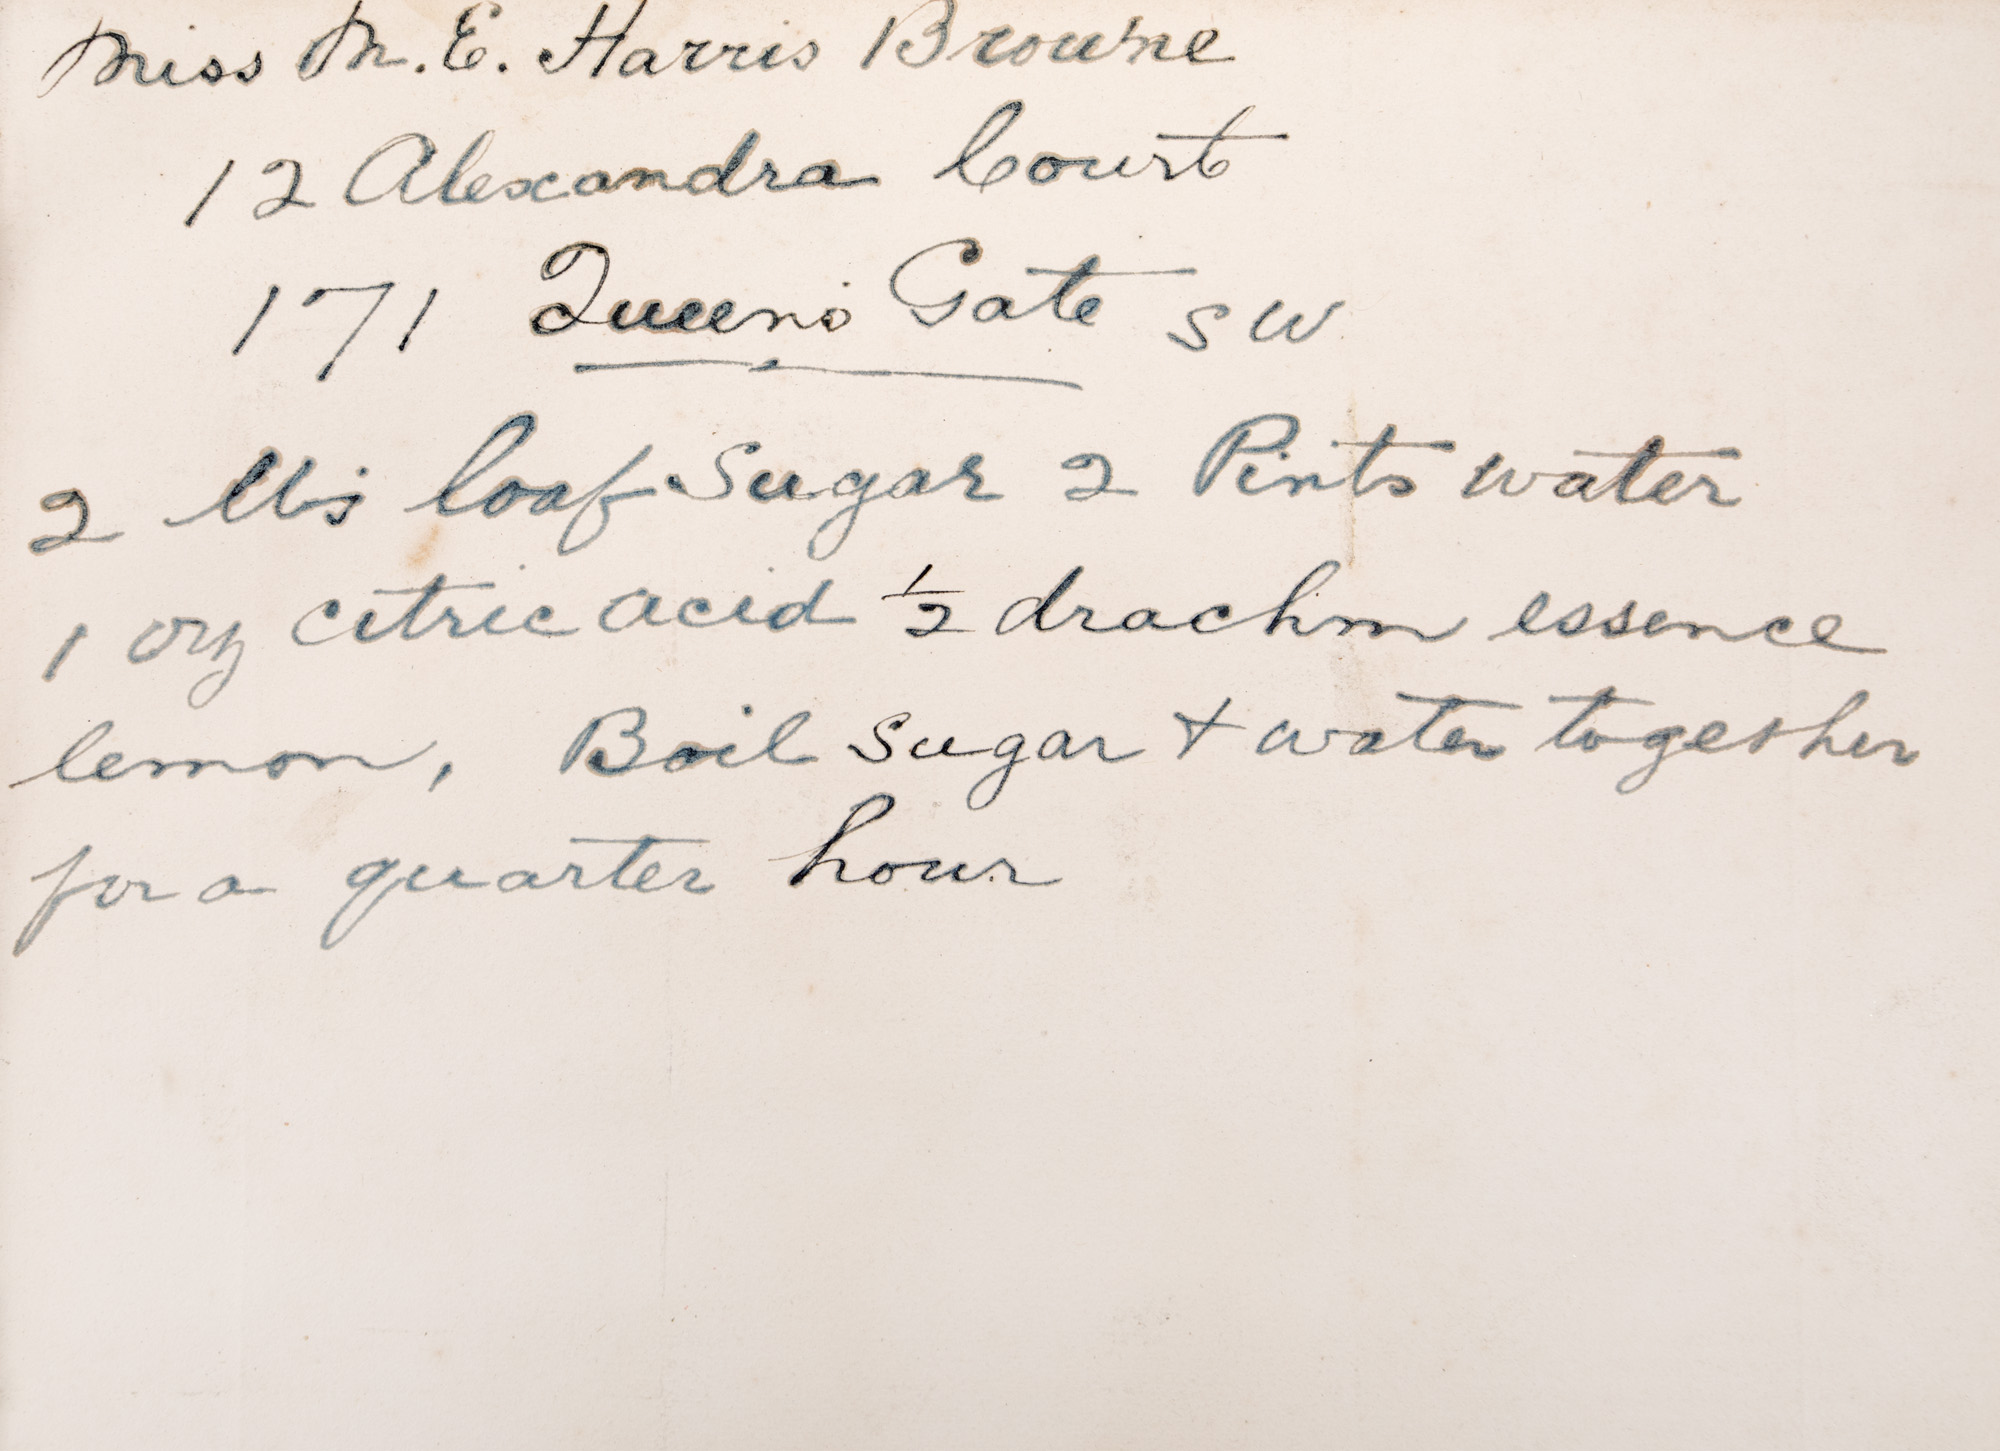 Miss M. E. Harris Browne
12 Alexandra Court
171 Queens Gate SW
2 lbs loaf Sugar 2 Pints water
1 oz citric acid ½ drachm essence
lemon, Boil sugar + water together
for a quarter hour